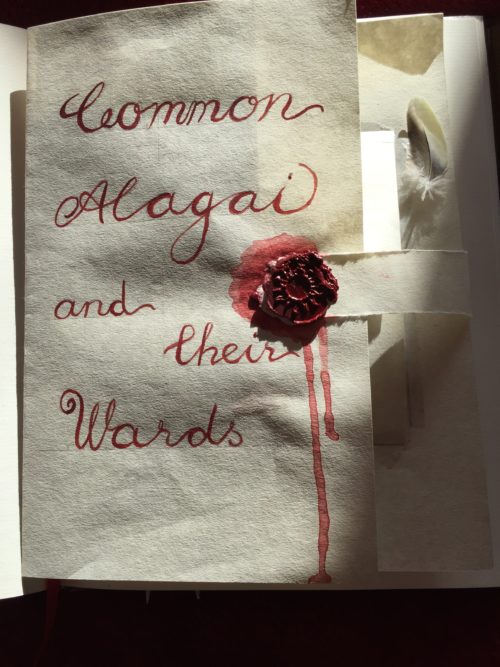 Common
Alagai
and
their
Wards